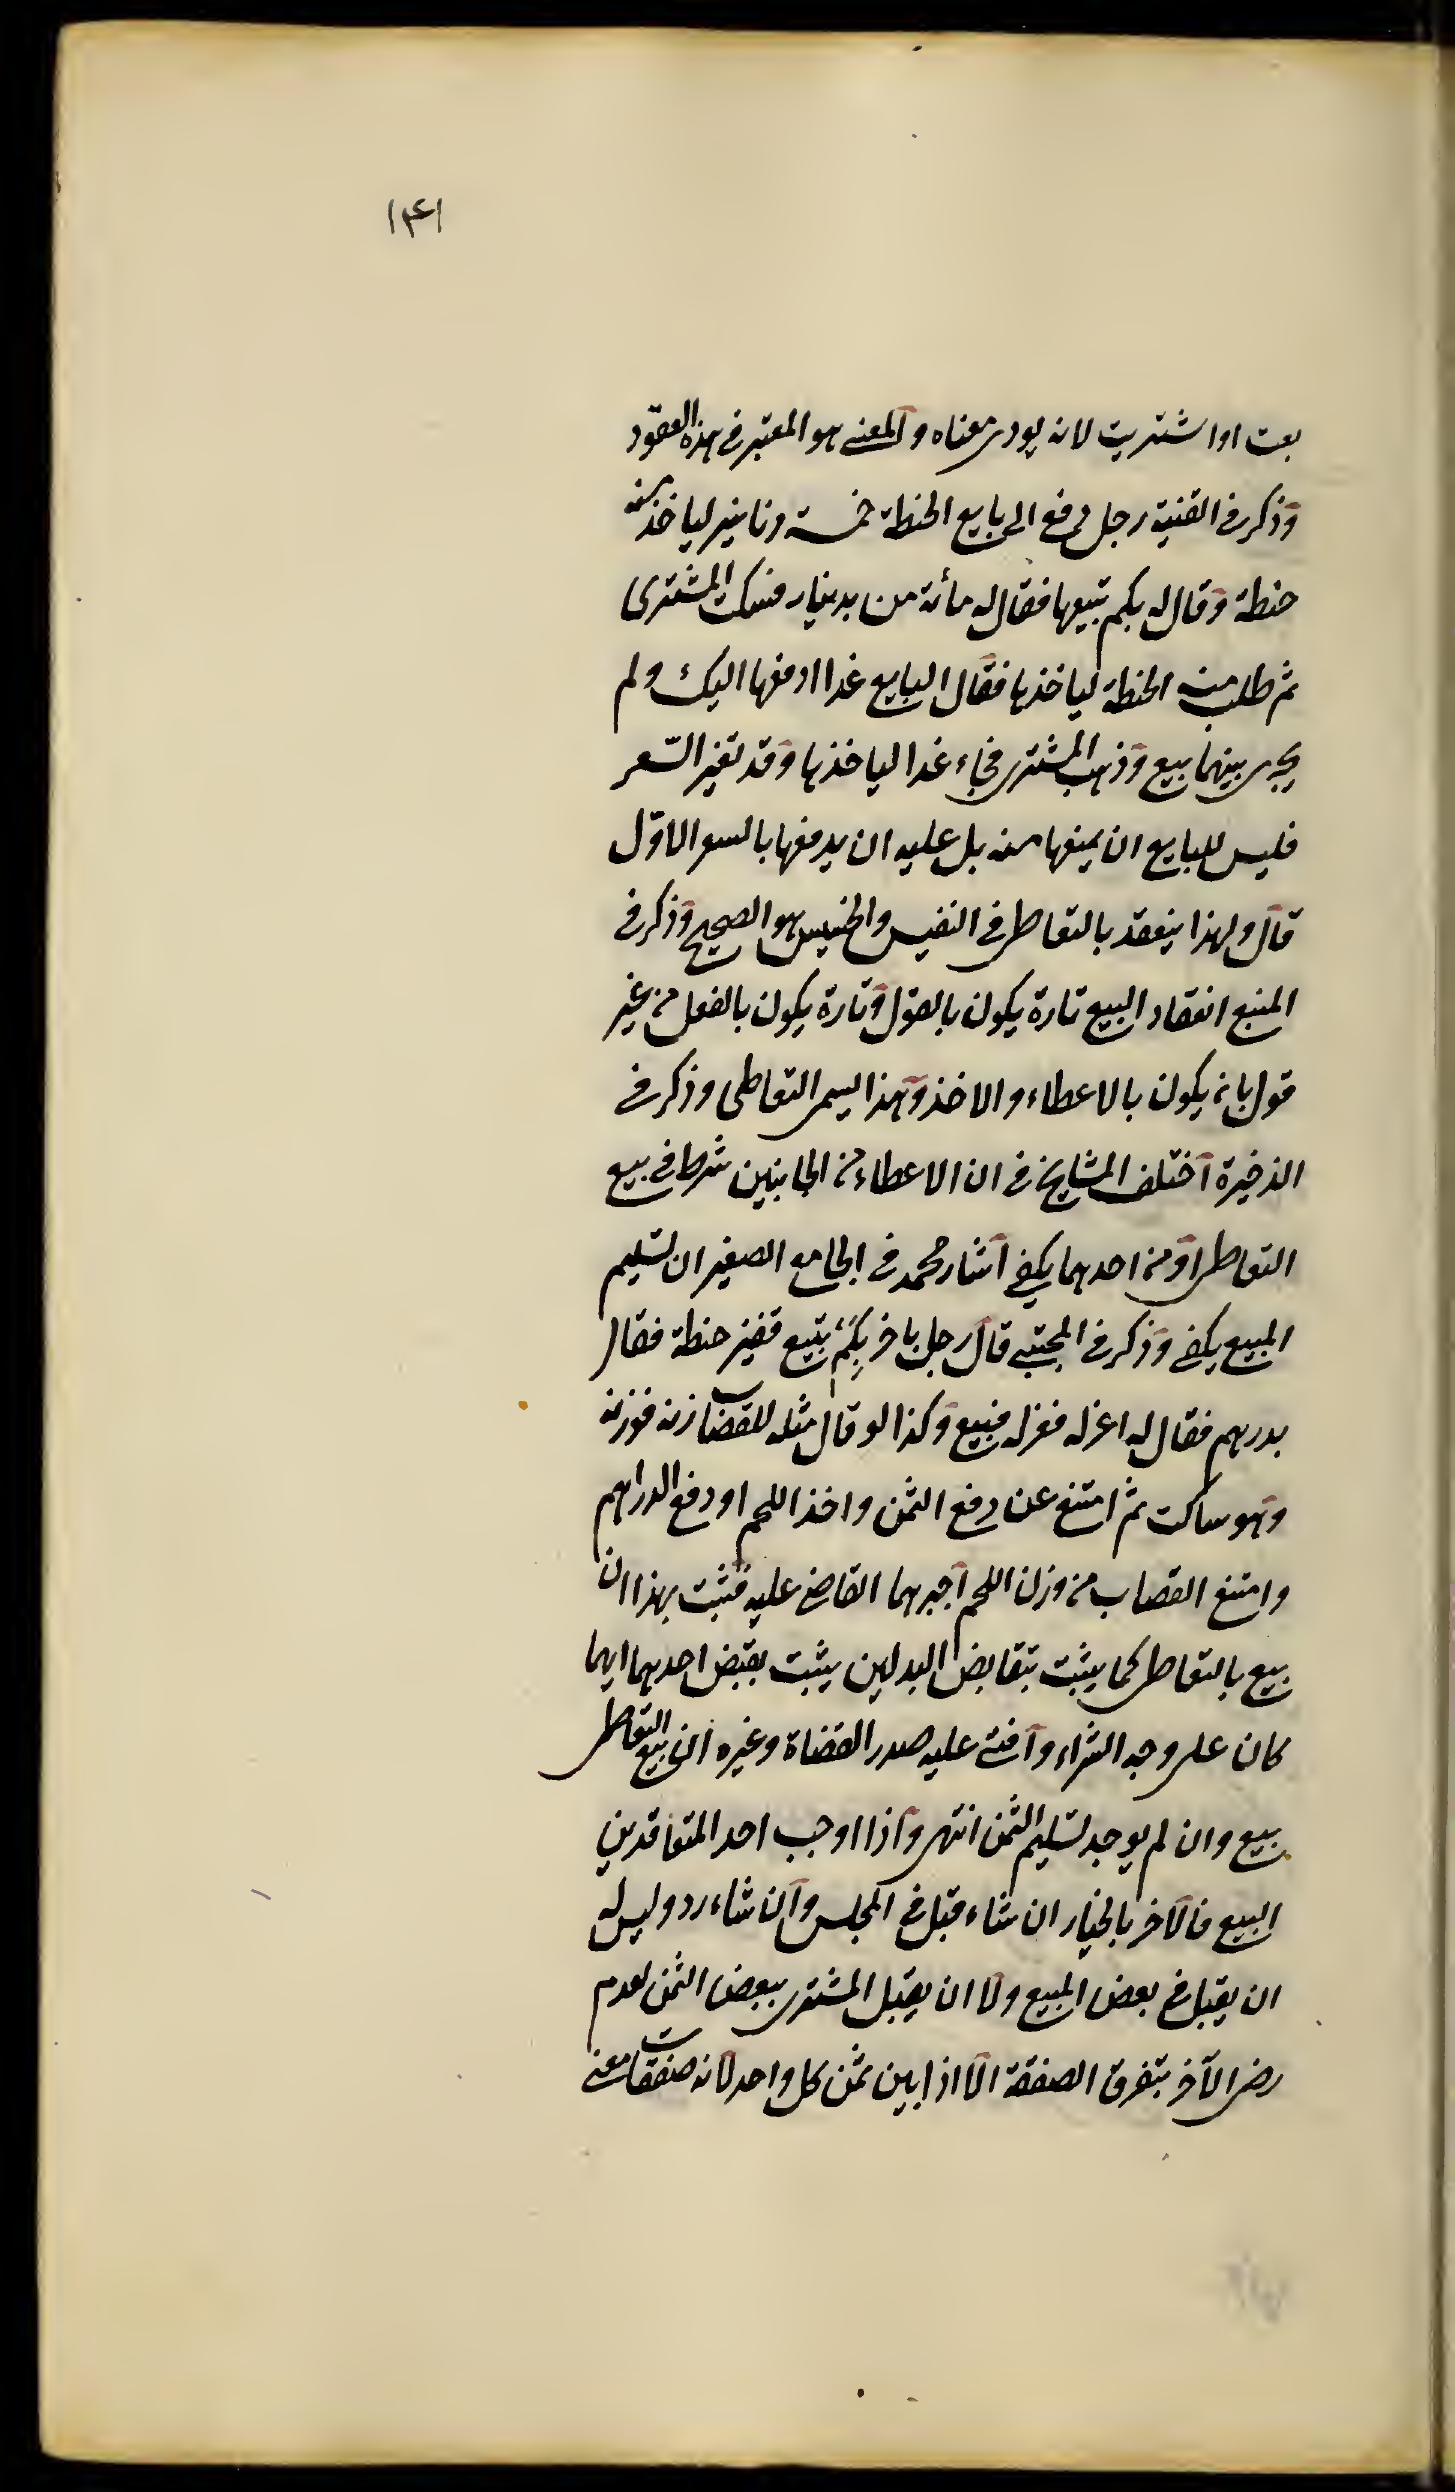 ١٤١
بعت او اشتريت لانه يودى معناه والمعنى هو المعتبر فى هذه العقود
وذكر فى القنية رجل دفع الى بايع الحنطة خمسة دنانير لياخذ منه
حنطة وقال له بكم تبيعها فقال له مأئة من بدينار فسكت المشترى
ثم طلب منه الحنطة لياخذها فقال البايع غدا ادفعها اليك ولم
يجرى بينهما بيع وذهب المشترى فجاء غدا لياخذها وقد تغير السّعر
فليس للبايع ان يمنعها منه بل عليه ان يدفعها بالسعر الاوّل
قال ولهذا ينعقد بالتعاطى فى النفيس والخسيس هو الصحيح وذكر فى
المنبع انعقاد البيع تارة يكون بالقول وتارة يكون بالفعل من غير
قول بانه يكون بالاعطاء والاخذ وهذا يسمى التعاطى وذكر فى
الذخيرة اختلف المشايخ فى ان الاعطاء من الجانبين شرط فى بيع
التعاطى او من احدهما يكفى اشار محمد فى الجامع الصغير ان تسليم
المبيع يكفى وذكر فى المجتبى قال رجل باخر بِكَمْ تبيع قفيز حنطة فقال
بدرهم فقال له اعزله فعزله فبيع وكذا لو قال مثله للقصاب زنه فوزنه
وهو ساكت ثم امتنع عن دفع الثمن واخذ اللحم او دفع الدراهم
وامتنع القصاب من وزن اللحم اجبرهما القاضى عليه فثبت بهذا ان
بيع بالتعاطى كما يثبت بتقابض البدلين يثبت بقبض احدهما ايهما
كان على وجه الشراء وافتى عليه صدر القضاة وغيره ان بيع التعاطى
بيع وان لم يوجد تسليم الثمن انتهى واذا اوجب احد المتعاقدين
البيع فالآخر بالخيار ان شاء قبل فى المجلس وان شاء رد وليس له
ان يقبل فى بعض المبيع ولا ان يقبل المشترى ببعض الثمن لعدم
رضى الآخر بتفرق الصفقة الّا اذا بين ثمن كل واحد لانه صفقات معنى